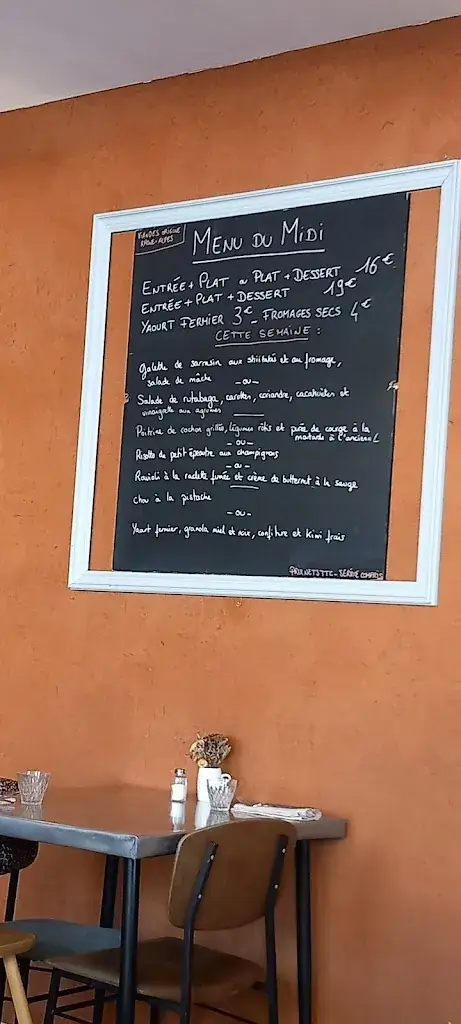 VIANDES ORIGINE
RHÔNE-ALPES
MENU DU MIDI
ENTRÉE + PLAT ou PLAT + DESSERT 16€
ENTRÉE + PLAT + DESSERT 19€
YAOURT FERMIER 3€ - FROMAGES SECS 4€
CETTE SEMAINE :
Galette de sarrasin aux shiitakés et au fromage,
salade de mâche
- ou -
Salade de rutabaga, carottes, coriandre, cacahuètes et
vinaigrette aux agrumes
Poitrine de cochon grillée, légumes rôtis et purée de courge à la
moutarde à l'ancienne
- ou -
Risotto de petit épeautre aux champignons
- ou -
Ravioli à la raclette fumée et crème de butternut à la sauge
Chou à la pistache
- ou -
Yaourt fermier, granola miel et noix, confiture et kiwi frais
PRIX NETS TTC - SERVICE COMPRIS